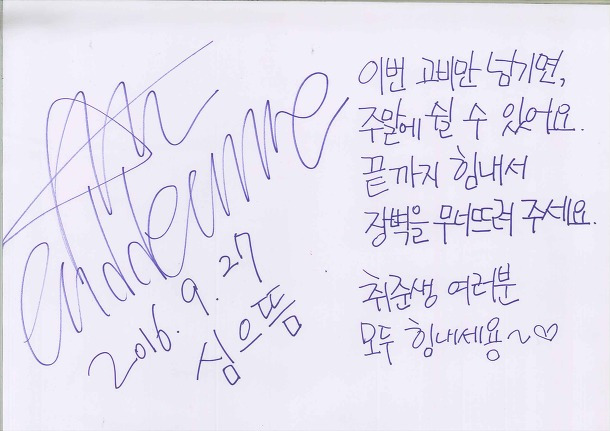 2016. 9. 27
심으뜸
이번 고비만 넘기면,
주말에 쉴 수 있어요.
끝까지 힘내서
장벽을 무너뜨려 주세요.
취준생 여러분
모두 힘내세용~♡